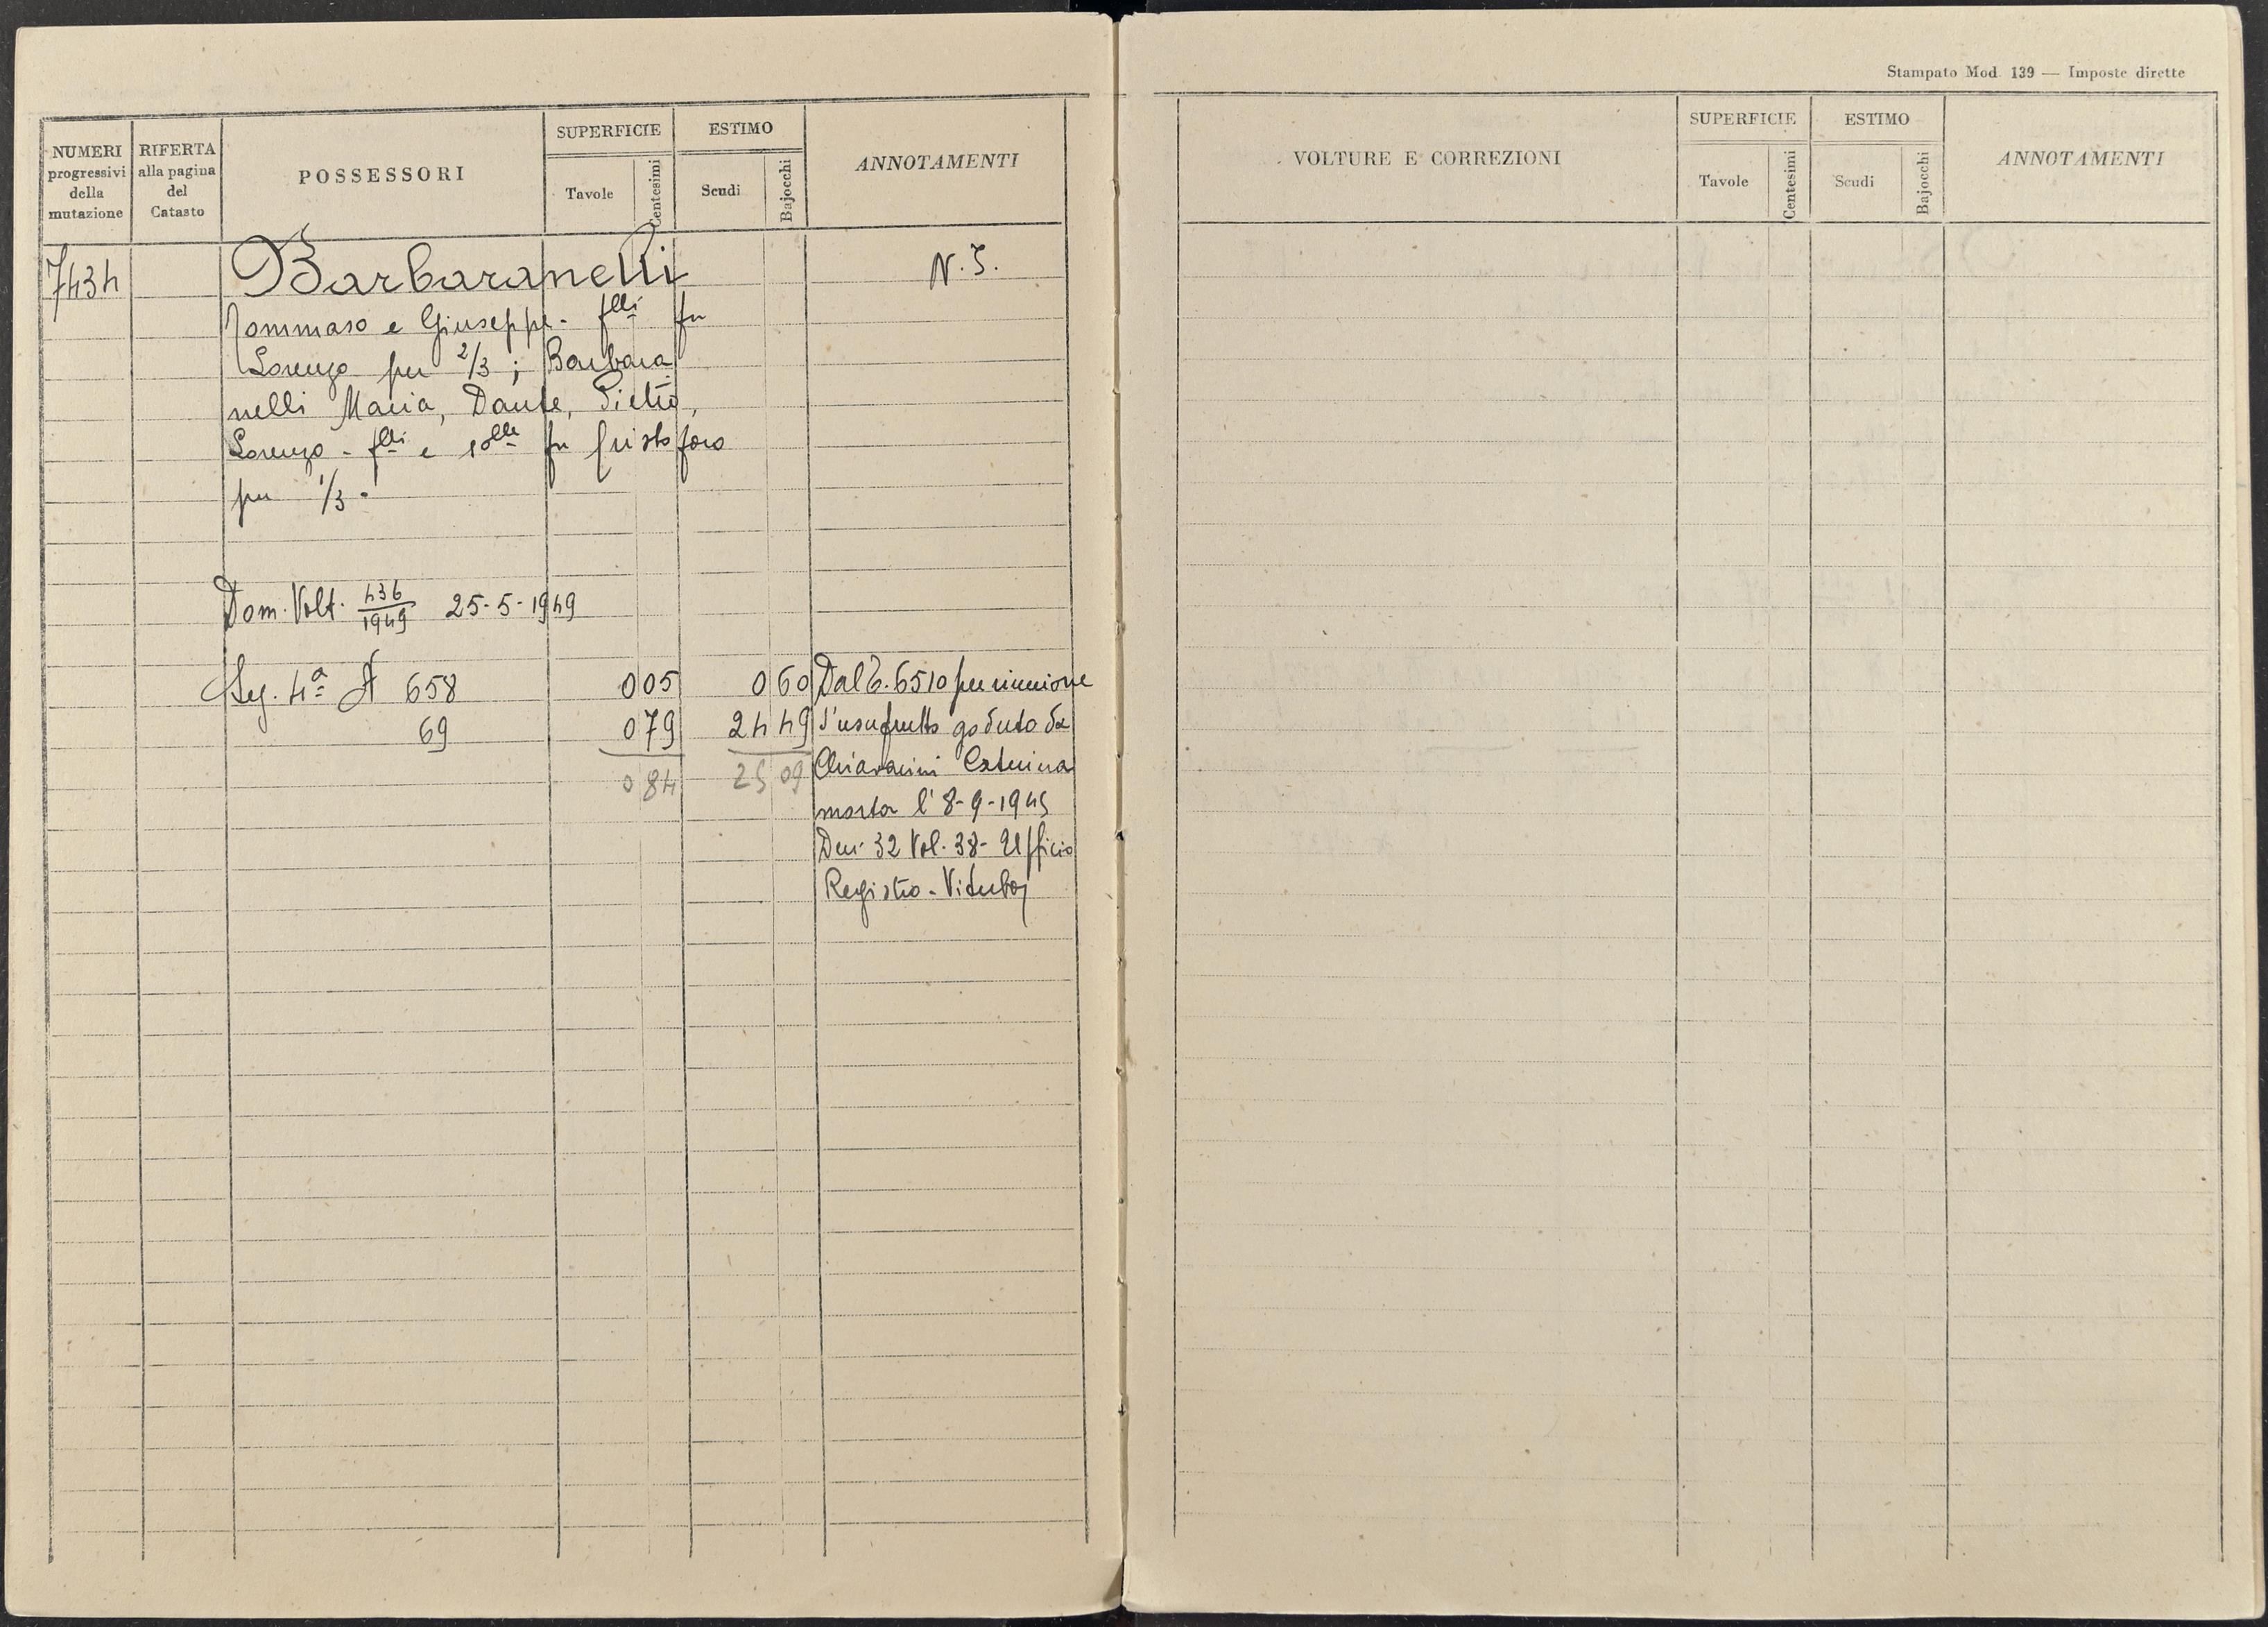 NUMERI
progressivi
della
mutazione
RIFERTA
alla pagina
del
Catasto
POSSESSORI
SUPERFICIE
Tavole
Centesimi
ESTIMO
Scudi
Bajocchi
ANNOTAMENTI
7434
Barbaranelli
N.
Tommaso e Giuseppe - flli fu
Lorenzo per 2/3 ; Barbara
nelli Maria, Dante, Pietro,
Lorenzo - flli e solle fu Cristoforo
per 1/3 -
Dom. Volt. 436/1949 25-5-1949
Sez. 4a A 658 0 05 0 60 Dal 6510 per riunione
69 0 79 24 49 d'usufrutto goduto da
0 84 25 09 Chiaravini Caterina
morta l' 8-9-1945
Den. 32 Vol. 38 - Ufficio
Registro - Viterbo
Stampato Mod. 139 — Imposte dirette
VOLTURE E CORREZIONI
SUPERFICIE
Tavole
Centesimi
ESTIMO
Scudi
Bajocchi
ANNOTAMENTI